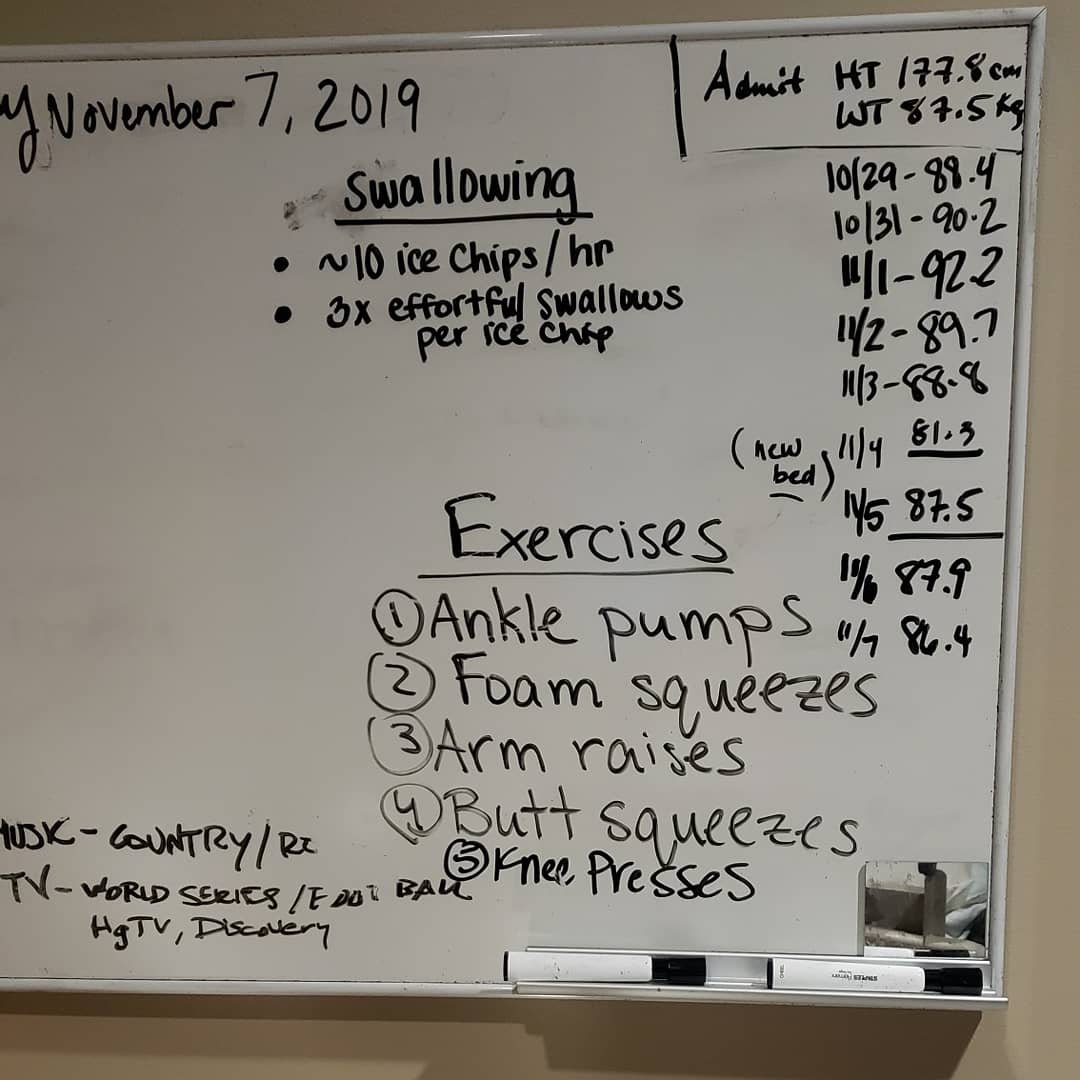 y November 7, 2019
Admit HT 177.8 cm
WT 87.5 kg
Swallowing
• ~10 ice chips/hr
• 3x effortful swallows
per ice chip
10/29 - 88.4
10/31 - 90.2
11/1 - 92.2
11/2 - 89.7
11/3 - 88.8
(new bed) 11/4 81.3
11/5 87.5
11/6 87.9
11/7 86.4
Exercises
① Ankle pumps
② Foam squeezes
③ Arm raises
④ Butt squeezes
⑤ Knee Presses
MUSIC - COUNTRY/
TV - WORLD SERIES / FOOTBALL
HgTV, Discovery
STAPLES